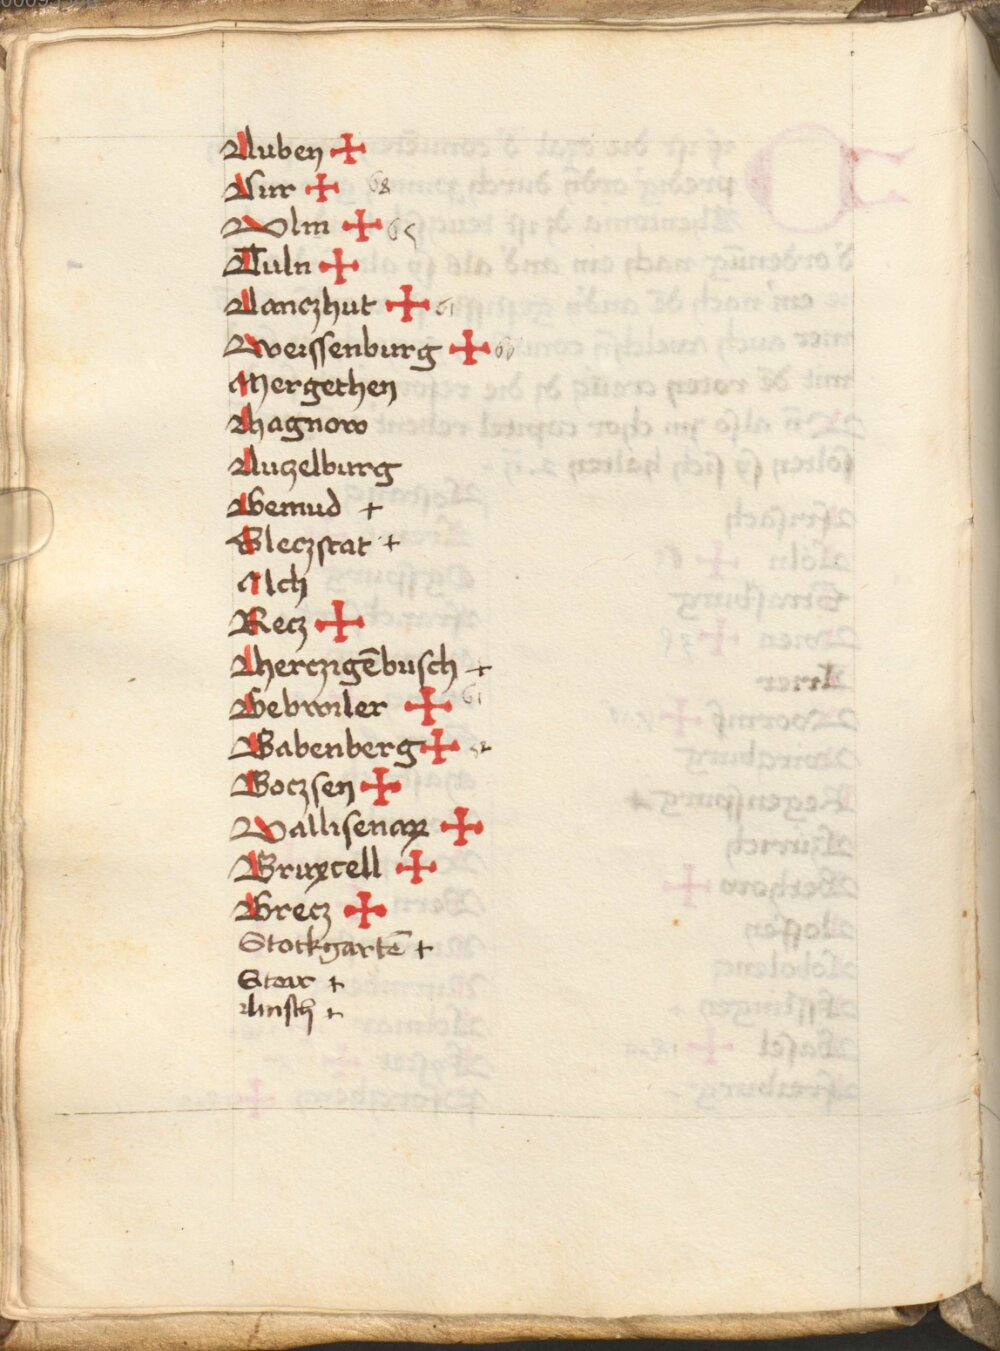 Luben ✠
Cur ✠ 68
Vlm ✠ 65
Tuln ✠
Lanczhut ✠ 61
Weissenburg ✠ 60
Mergethen
Hagnow
Luczelburg
Gemud +
Sleczstat +
Ach
Recz ✠
Herczigēbusch +
Gebwiler ✠ 61
Babenberg ✠
Boczsen ✠
Vallisenarꝫ ✠
Bruxcell ✠
Grecz ✠
Stockgartē +
Steir +
Linsch +